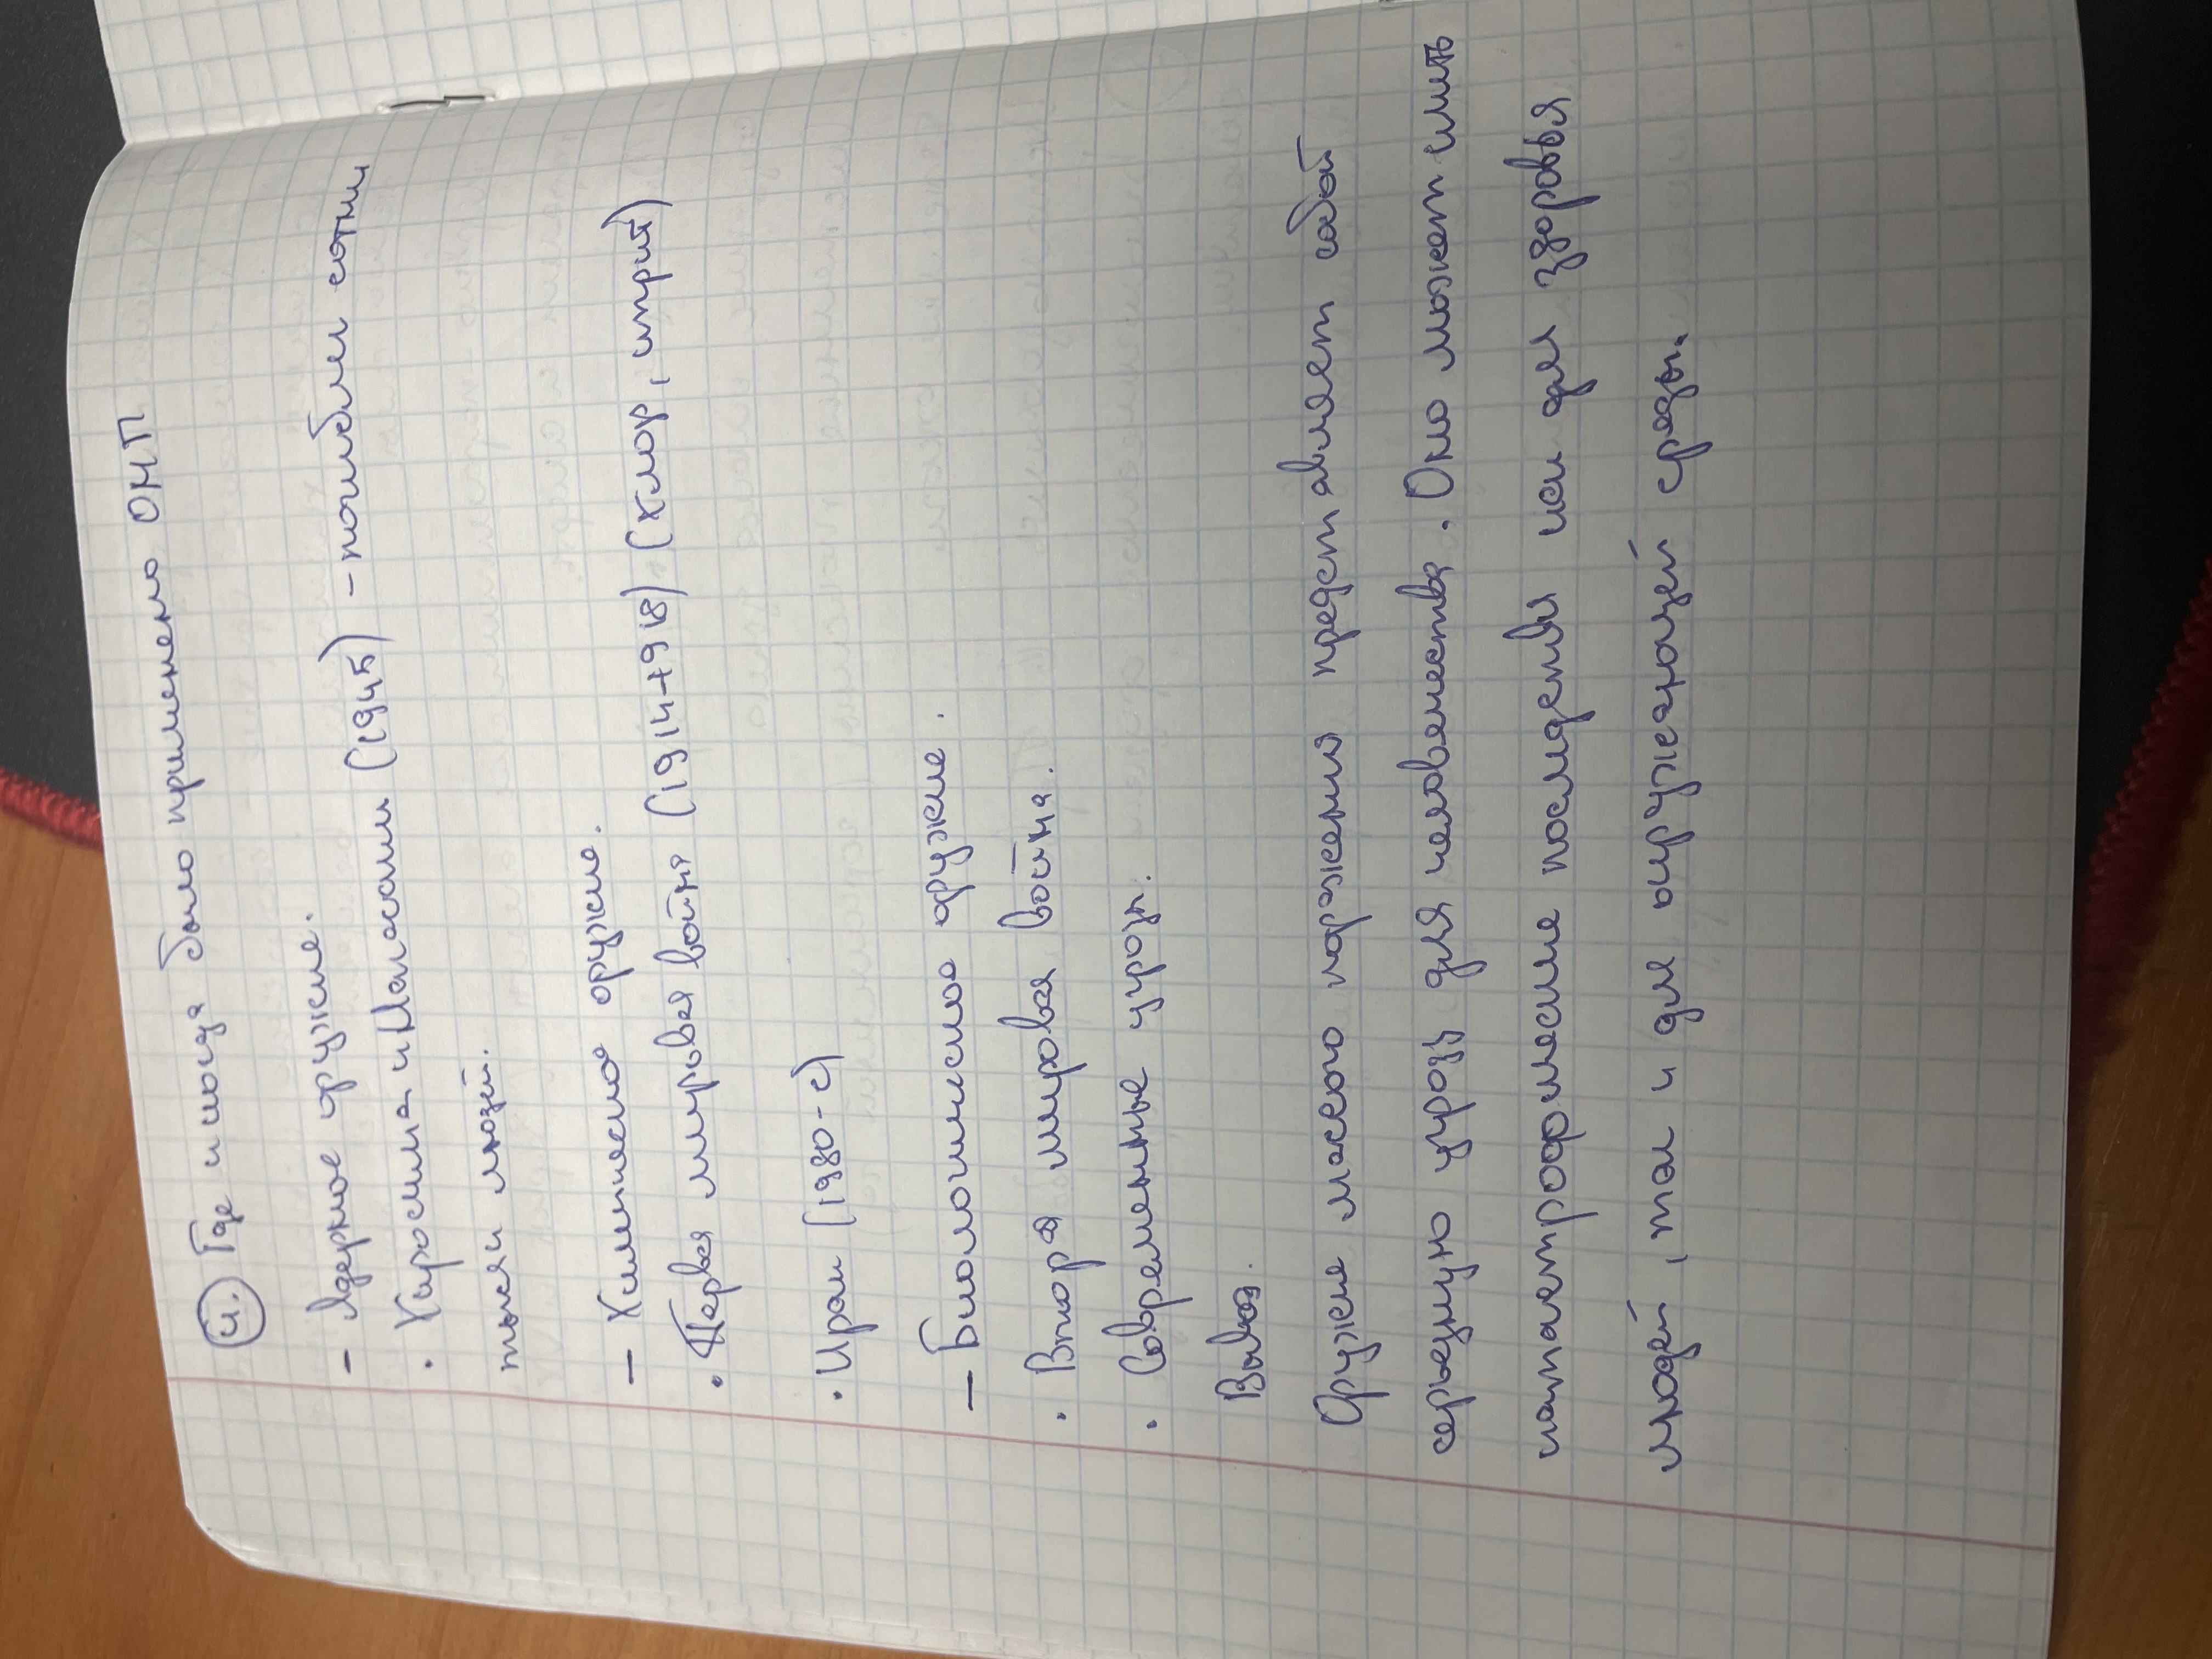 4. Где и когда было применено ОМП
- Ядерное оружие.
· Хиросима и Нагасаки (1945) - погибли сотни
тысяч людей.
- Химическое оружие.
· Первая мировая война (1914-1918) (хлор, иприт)
· Иран (1980-е)
- Биологическое оружие.
· Вторая мировая война.
· Современные угрозы.
Вывод.
Оружие массого поражения представляет собой
серьезную угрозу для человечества. Оно может иметь
катастрофические последствия как для здоровья
людей, так и для окружающей среды.